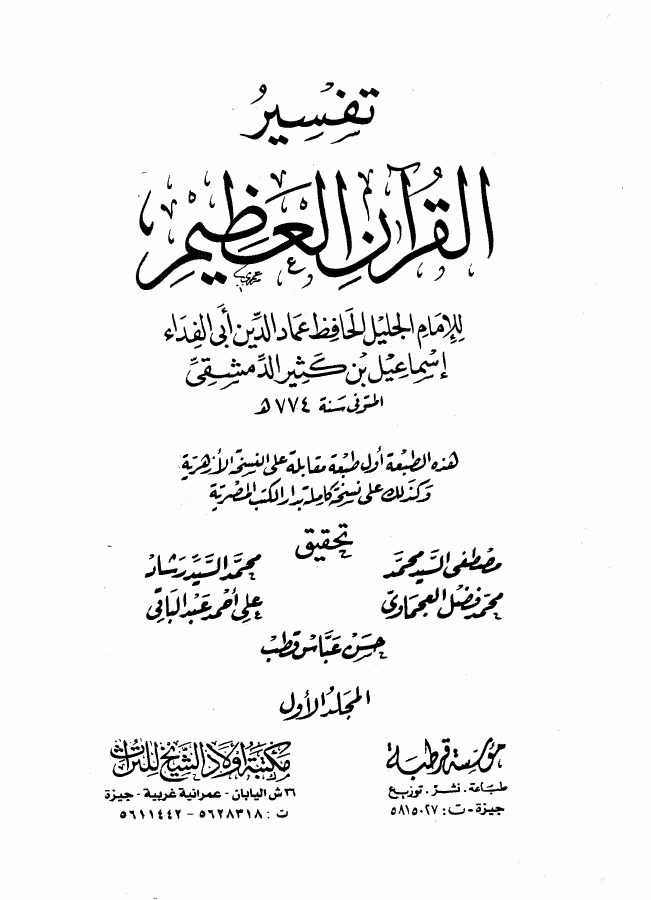 تفسير
القرآن العظيم
للإمام الجليل الحافظ عماد الدين أبي الفداء
إسماعيل بن كثير الدمشقي
المتوفى سنة ٧٧٤ هـ
هذه الطبعة أول طبعة مقابلة على النسخة الأزهرية
وكذلك على نسخة كاملة بدار الكتب المصرية
تحقيق
مصطفى السيد محمد محمد السيد رشاد
محمد فضل العجماوي علي أحمد عبد الباقي
حسن عباس قطب
المجلد الأول
مؤسسة قرطبة
طباعة . نشر . توزيع
جيزة - ت : ٥٨١٥٠٢٧
مكتبة أولاد الشيخ للتراث
٣٦ ش اليابان - عمرانية غربية - جيزة
ت : ٥٦٢٨٣١٨ - ٥٦١١٤٤٢